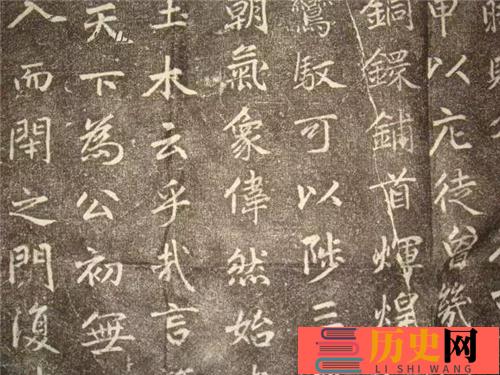 甲以庀徒曾幾
銅鐶鋪首輝煌
鸞馭可以陟三
朝氣象偉然始
土木云乎哉言
天下為公初無
入而閉之閉復
历史网
LI SHI WANG